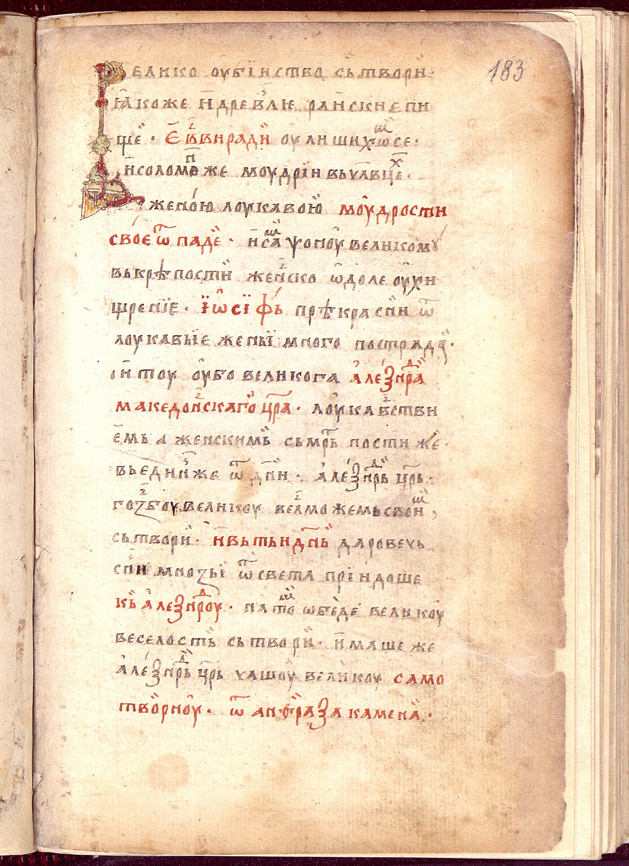 183
велико оубїиство сьтвори:
ꙗкоже и древлѥ раискиѥ пи
ще · Еввиради оулишихѡсе:
и соломⷪ҇же моудрїи вь
женою лоукавою моудрости
своеѡ҃ паде · и самѱоноу великомⷹ
вькрѣпости женско ѡдоле оухи
щренїе · Їѡсїфь прѣкрасни ѿ
лоукавыѥ жены много пострада ·
и тоу оубо великога алеѯнⷣра
македонскаго цр҃а · лоукавⷭтви
емь а женскимь смрⷮь постиже ·
вьединже ѿ дн҃и · алеѯнⷣрь цр҃ь
гоꙁбоу великоу велможемь своиⷨ
сьтвори · и вьтьидн҃ь даровечь
сни мноꙁы ѿ света прїидоше
кь алеѯнⷣроу · на тоⷨ ѡбеде великоу
веселость сьтвори · имаше же
алеѯнⷣрь цр҃ь чашоу великоу само
творноу · ѿ анѳраꙁа камена ·